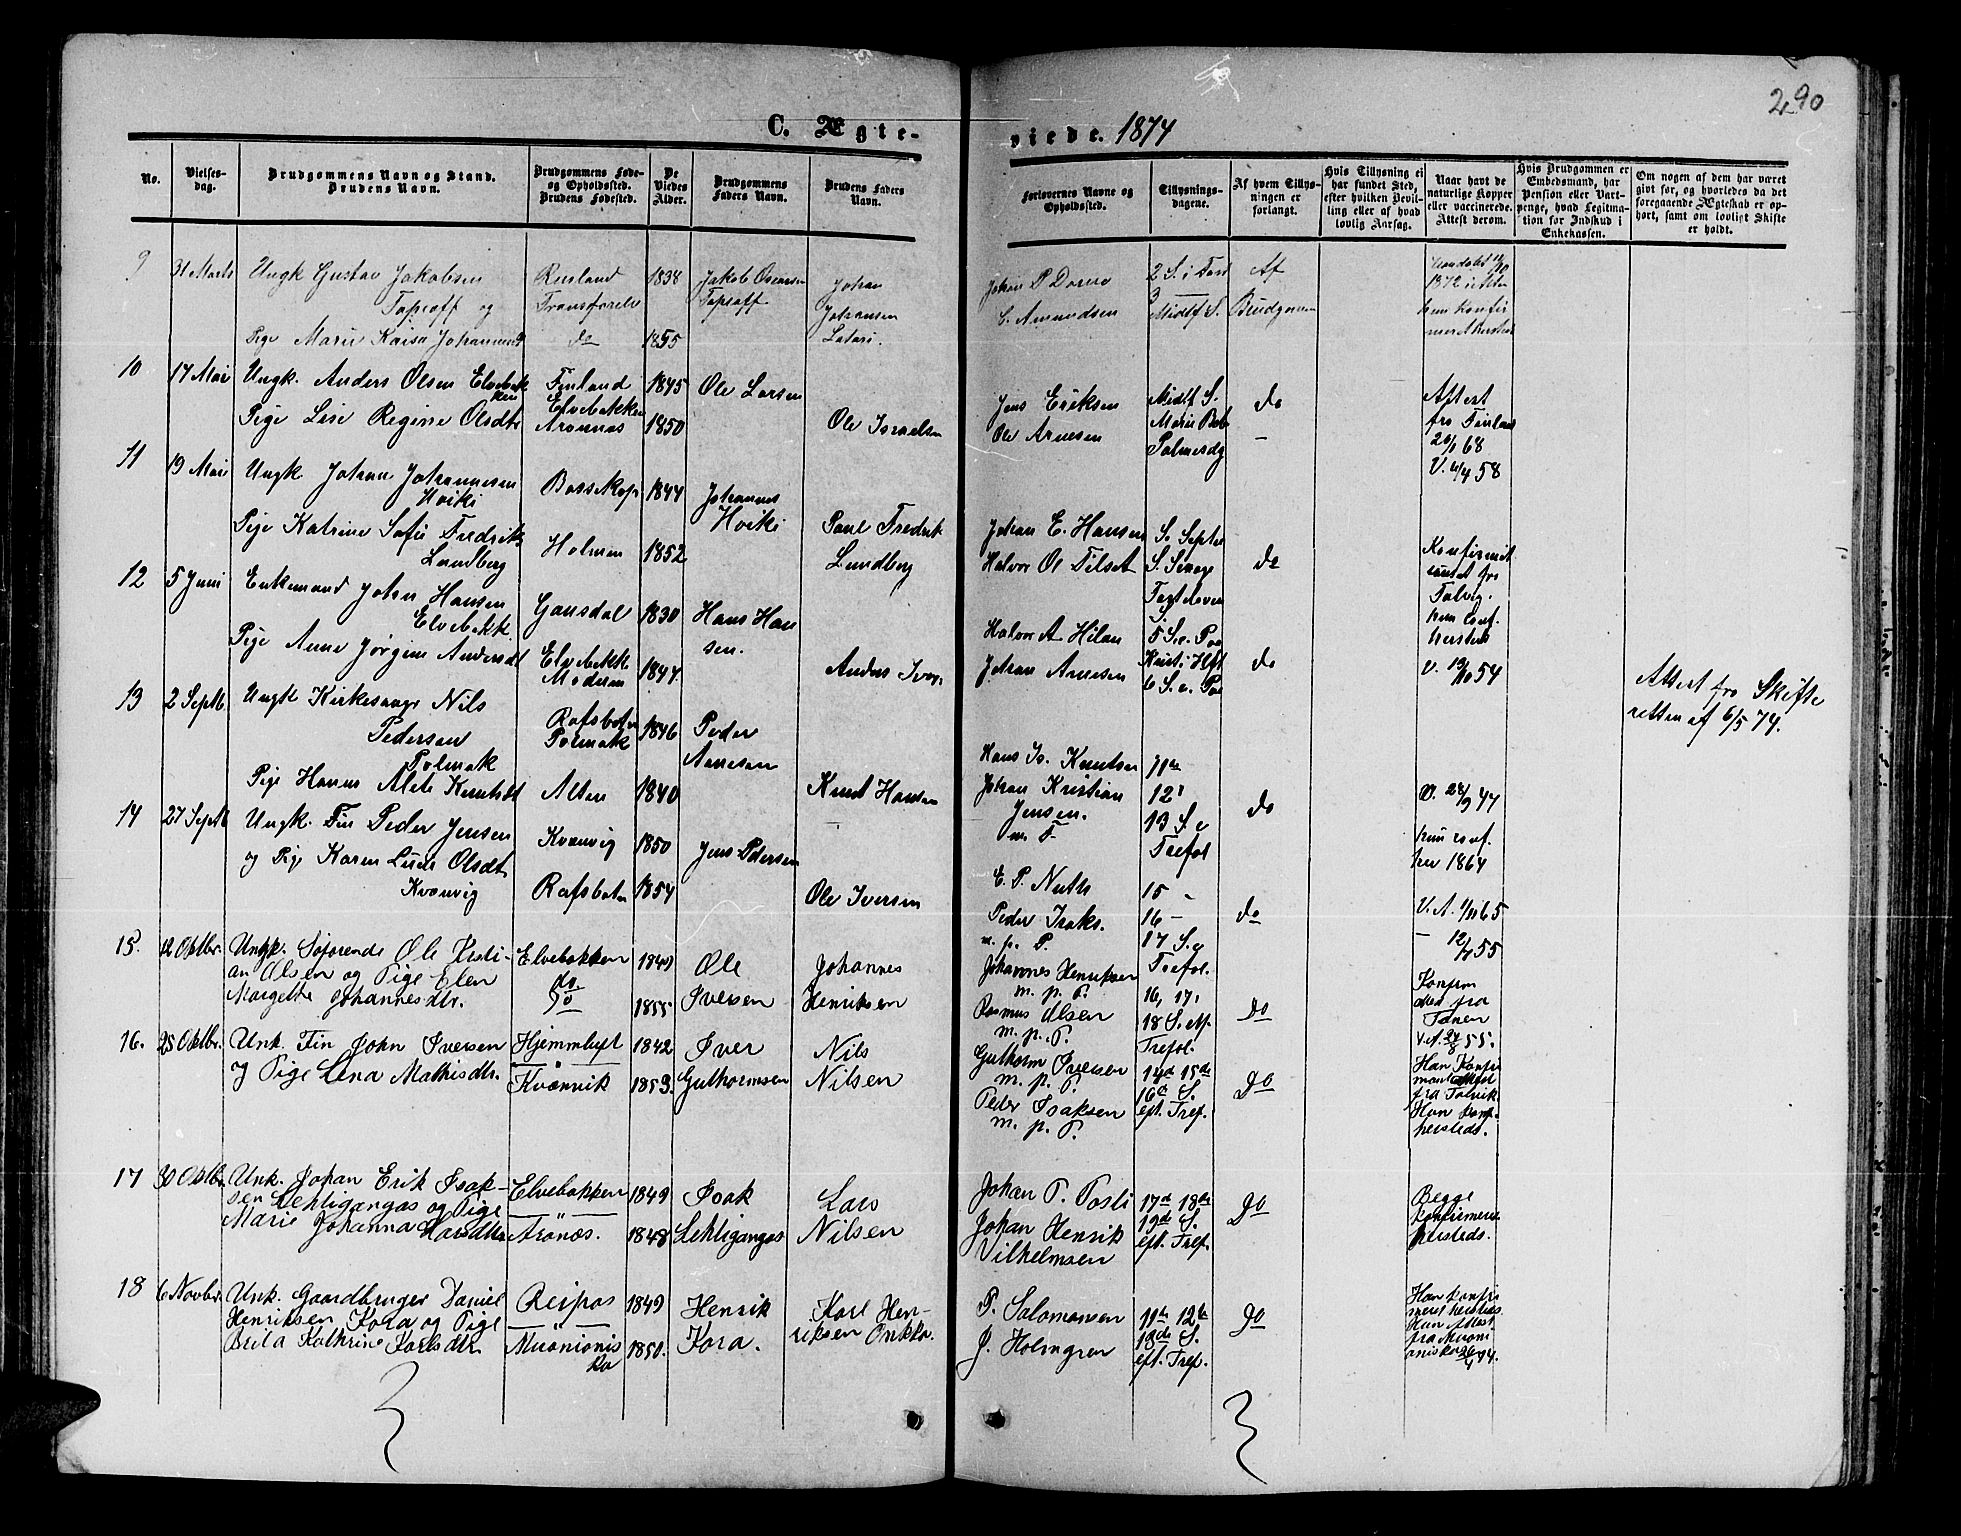 290
C. Ægte-
viede. 1874
No.
Vielses-
dag.
Brudgommens Navn og Stand.
Brudens Navn.
Brudgommens Føde-
og Opholdssted.
Brudens Fødested.
De
Viedes
Alder.
Brudgommens
Faders Navn.
Brudens Faders
Navn.
Forlovernes Navne og
Opholdssted.
Tillysnings-
dagene.
Af hvem Tillys-
ningen er
forlangt.
Hvis Tillysning ei
har fundet Sted,
efter hvilken Bevil-
ling eller af hvad
lovlig Aarsag.
Naar havt de
naturlige Kopper
eller vaccinerede.
Attest derom.
Hvis Brudgommen er
Embedsmand, har
Pension eller Vart-
penge, hvad Legitima-
tion for Indskud i
Enkekassen.
Om nogen af dem har været
givt før, og hvorledes da det
foregaaende Ægteskab er op-
hørt, samt om lovligt Skifte
er holdt.
9
31 Marts
Ungk Gustav Jakobsen
og
Pige Marie Kaisa
Rusland
do
1838
1855
Johan
Johansen
C. Amundsen
2 S. i Fast
3 —
Midtf S.
Af
Brudgmen
1872
10
17 Mai
Ungk. Anders Olsen Elvebak
ken
Pige Lise Regine Olsdtr
Finland
Elvebakken
Aronnæs
1845
1850
Ole Larsen
Ole Israelsen
Jens Eriksen
Ole Arnesen
Midtf S.
Marie Beb
Palmesdg
do
—
Attest
fra Finland
20/1 68
V. 4/4 58
11
19 Mai
Ungk Johan Johannesen
Hviki
Pige Katrine Sofie Fredriks
Lundberg
Bossekop
Holmen
1844
1852
Johannes
Hviki
Paul Fredrik
Lundberg
Johan E. Hansen
Halvor O. Tilset
S. Septu
S. Sexage
do
Konfirmat
fra
Talvig.
hun conf.
hersteds
12
5 Juni
Enkemand Johan Hansen
Elvebakk.
Pige Anne Jørgine Andersdt
Elvebakk
1830
1847
Hans Han
sen.
Anders Iver
Halvor A Hilan
Johan Arnesen
5 S. e. Paa
Kristi Hft
6 S. e. Paa
do
V. 54
Attest fra Skifte
retten af 6/5 74.
13
2 Septb
Ungk Kirkesanger Nils
Pedersen
Polmak
Pige Hanna Alete Knutsdt
Rafsbotn
Polmak
Alten
1846
1840
Peder
Arnesen
Knut Hansen
Hans Is. Knutsen
Johan Kristian
Jensen.
m. F.
11te
12'
13 S. e
Trefol
do
V. 28/9 47
hun conf.
her 1864
14
27 Septb
Ungk. Fin Peder Jensen
og Pige Karen Lusie Olsdt
Kvænvig
Kvænvig
Rafsbotn
1850
1854
Jens Pedersen
Ole Iversen
E. P. Nuth
Peder Isaks.
m. p. P.
15 -
16 —
17 S. e
Trefol.
do
V. A. 1/11 65
— 12/7 55
15.
12 Oktbr.
Ungk. Søfarende Ole Kristi-
an Olsen og Pige Elen
Margethe Johannesdtr.
Elvebakken
do.
1849
1855
Ole
Iversen
Johannes
Henriksen
Johannes Henriksen
m. p. P.
Rasmus Olsen
m. p. P.
16, 17,
18 S. ef.
Trefol.
Do
Konfirm
attest fra
Tanen
16.
25 Oktbr.
Unk. Fin John Iversen
og Pige Lena Mathisdtr.
Hjemmluft
Kvænvik
1842
1853.
Iver
Guthormsen
Nils
Nilsen
Guthorm Iversen
m. p. P.
Peder Isaksen
m. p. P.
14de 15de
16de S.
eft. Tref.
Do
Han Konfir
mant attest
fra Talvik
Hun konf.
hersteds.
17
30 Oktbr.
Unk. Johan Erik Isak-
sen Lehtigangas og Pige
Marie Johanna Larsdtr.
Elvebakken
Aronæs.
1849
1848
Isak
Lehtigangas
Lars
Nilsen
Johan P. Posti
Johan Henrik
Vilhelmsen
17de 18de
19de S.
eft. Tref.
Do
Begge
konfirmeret
hersteds.
18
6 Novbr.
Unk. Gaardbruger Daniel
Henriksen Kora og Pige
Brita Kathrine Karlsdtr.
Reipas
Muonionis
ka
1849
1850.
Henrik
Kora.
Karl Hen-
riksen Onkka.
P. Salomonsen
J. Holmgren
11te 12te
18de S.
eft. Tref.
Do
Han konfir
meret hersteds
Hun attest
fra Muoni
oniska